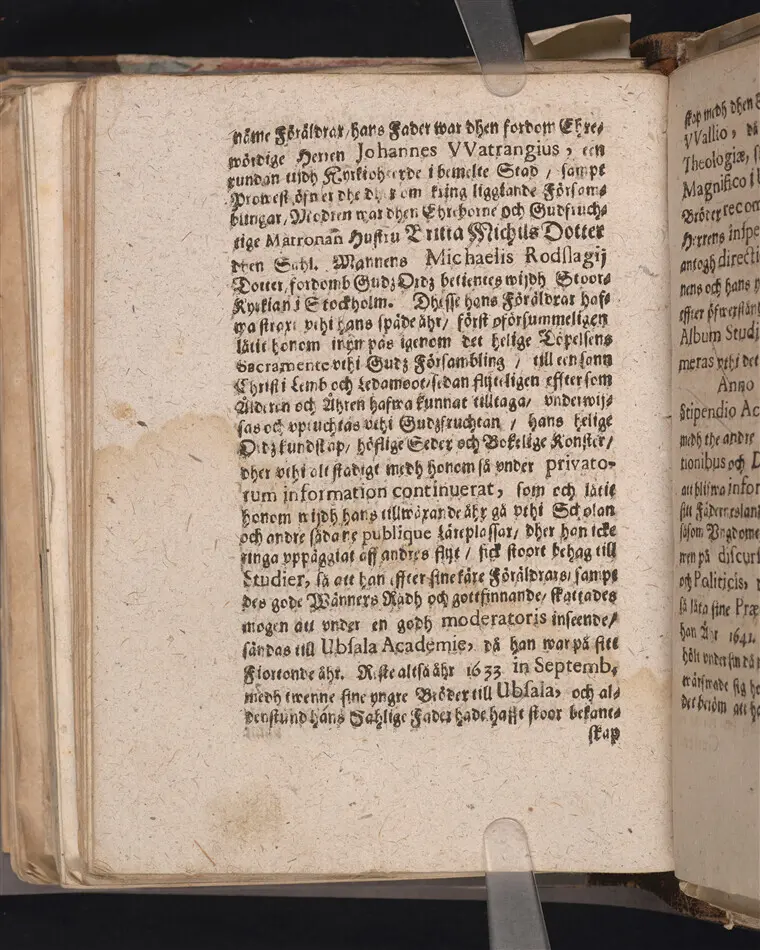 näme Föräldrar/ hans Fader war dhen fordom Ehre-
wördige Herren Johannes VVatrangius, een
rundan tijdh Kyrkioheerde i bemelte Stad / sampt
Prowest öfwer dhe der om kring liggiande Försam-
blingar, Modren war dhen Ehreborne och Gudfruch-
tige Matronan Hustru Britta Michils Dotter
dhen Sahl. Mannens Michaelis Rodslagij
Dotter, fordomb Gudz Ordz betientes wijdh Stoor-
Kyrkian i Stockholm. Dhesse hans Föräldrar haf-
wa straxt vthi hans späde ähr/ först oförsummeligen
lätit honom igenom det helige Döpelsens
Sacramente vthi Gudz Försambling / till een sann
Christi Lemb och Ledamoot/ sedan flijteligen effter som
Ålderen och Åhren hafwa kunnat tilltaga/ vnderwij-
sas och vptuchtas vthi Gudzfruchtan / hans helige
Ordz kundskap/ höflige Seder och Bokelige Konster/
dher vthi alt stadigt medh honom så vnder privato-
rum information continuerat, som och lätit
honom wijdh hans tillwäxande ähr gå vthi Scholan
och andre sådane publique Läreplassar/ dher han icke
ringa vppäggiat aff andres flijt / fick stoort behag till
Studier, så att han effter sine käre Föräldrars/ sampt
des gode Wänners Rådh och gottfinnande/ skattades
mogen att vnder en godh moderatoris inseende/
sändas till Ubsala Academie, då han war på sitt
Fiortonde ähr. Reste altså ähr 1633 in Septemb.
medh twenne sine yngre Bröder till Ubsala, och al-
denstund hans Sahlige Fader hade hafft stoor bekant-
skap
skap medh dhen
VVallio, då
Theologiæ,
Magnifico i
Bröder recom
Herrens inspe
antogh directi
nens och hans
effter öfwerstån
Album Studi
meras vthi det
Anno
Stipendio Ac
medh the andre
tionibus och D
att blifwa infor
sitt Fäderneslan
såsom Vngdome
ren på discurs
och Politicis,
så låta sine Præ
han Åhr 1641.
höll vnder sin
det beröm att